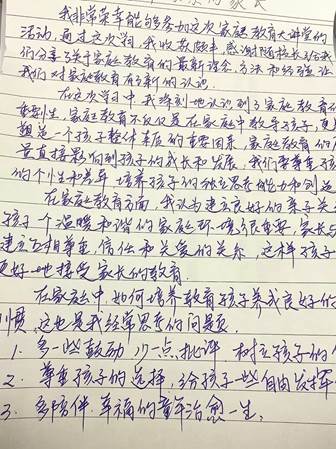 的家长
我非常荣幸能够参加这次家庭教育大讲堂的
活动,通过这次学习,我收获颇丰,感谢随校长给我
们分享了关于家庭教育的最新理念、方法和经验,让
我们对家庭教育有了新的认识.
在这次学习中,我深刻地认识到了家庭教育的
重要性,家庭教育不仅仅是在家庭中教导孩子,更
塑造一个孩子整体素质的重要因素,家庭教育的
量直接影响到孩子的成长和发展,我们要尊重孩子
的个性和差异,培养孩子的独立思考能力和创造
在家庭教育方面,我认为建立良好的亲子关
孩子一个温暖和谐的家庭环境很重要,家长与
建立互相尊重,信任和关爱的关系,这样孩子
更好地接受家长的教育.
在家庭中,如何培养教育孩子养成良好的
习惯,这也是我经常思考的问题.
1. 多一些鼓励,少一点批评,树立孩子的
2. 尊重孩子的选择,给孩子一些自由发挥
3. 多陪伴,幸福的童年治愈一生.